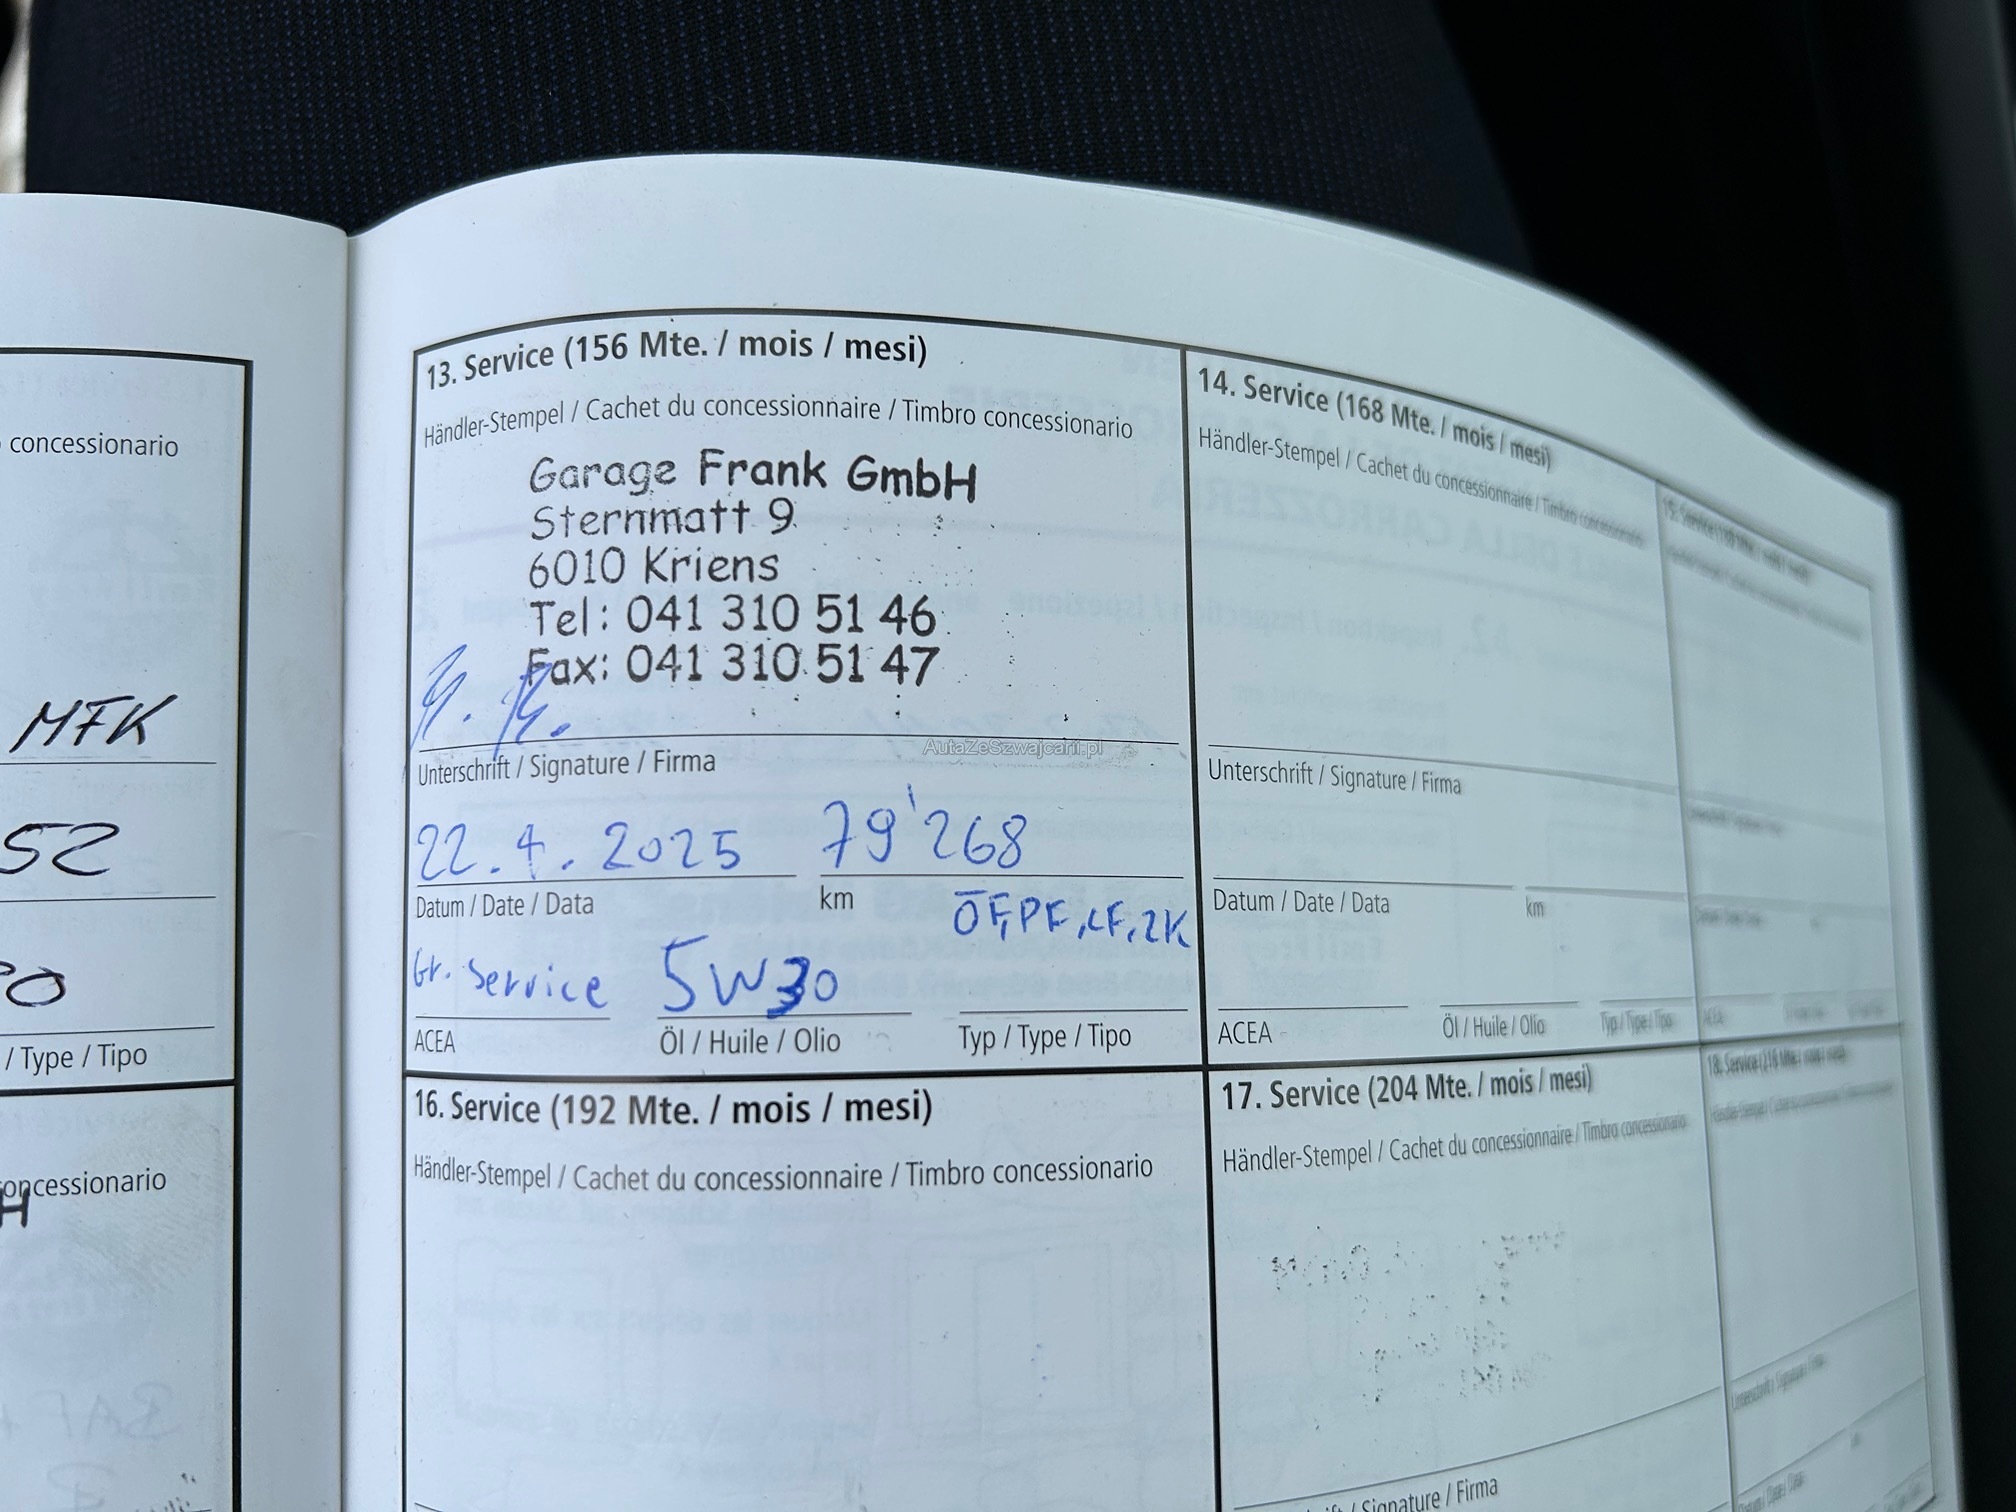 concessionario
MFK
52
/ Type / Tipo
oncessionario
H
13. Service (156 Mte. / mois / mesi)
Händler-Stempel / Cachet du concessionnaire / Timbro concessionario
Garage Frank GmbH
Sternmatt 9
6010 Kriens
Tel: 041 310 51 46
Fax: 041 310 51 47
AutaZeSzwajcarii.pl
Unterschrift / Signature / Firma
22.4.2025 79'268
Datum / Date / Data km
ÖF,PF,LF,ZK
Gr. Service 5W30
ACEA Öl / Huile / Olio Typ / Type / Tipo
14. Service (168 Mte. / mois / mesi)
Händler-Stempel / Cachet du concessionnaire / Timbro concessionario
Unterschrift / Signature / Firma
Datum / Date / Data km
ACEA Öl / Huile / Olio Typ / Type / Tipo
16. Service (192 Mte. / mois / mesi)
Händler-Stempel / Cachet du concessionnaire / Timbro concessionario
17. Service (204 Mte. / mois / mesi)
Händler-Stempel / Cachet du concessionnaire / Timbro concessionario
/ Signature / Firma
18. Service (216 Mte. / mois / mesi)